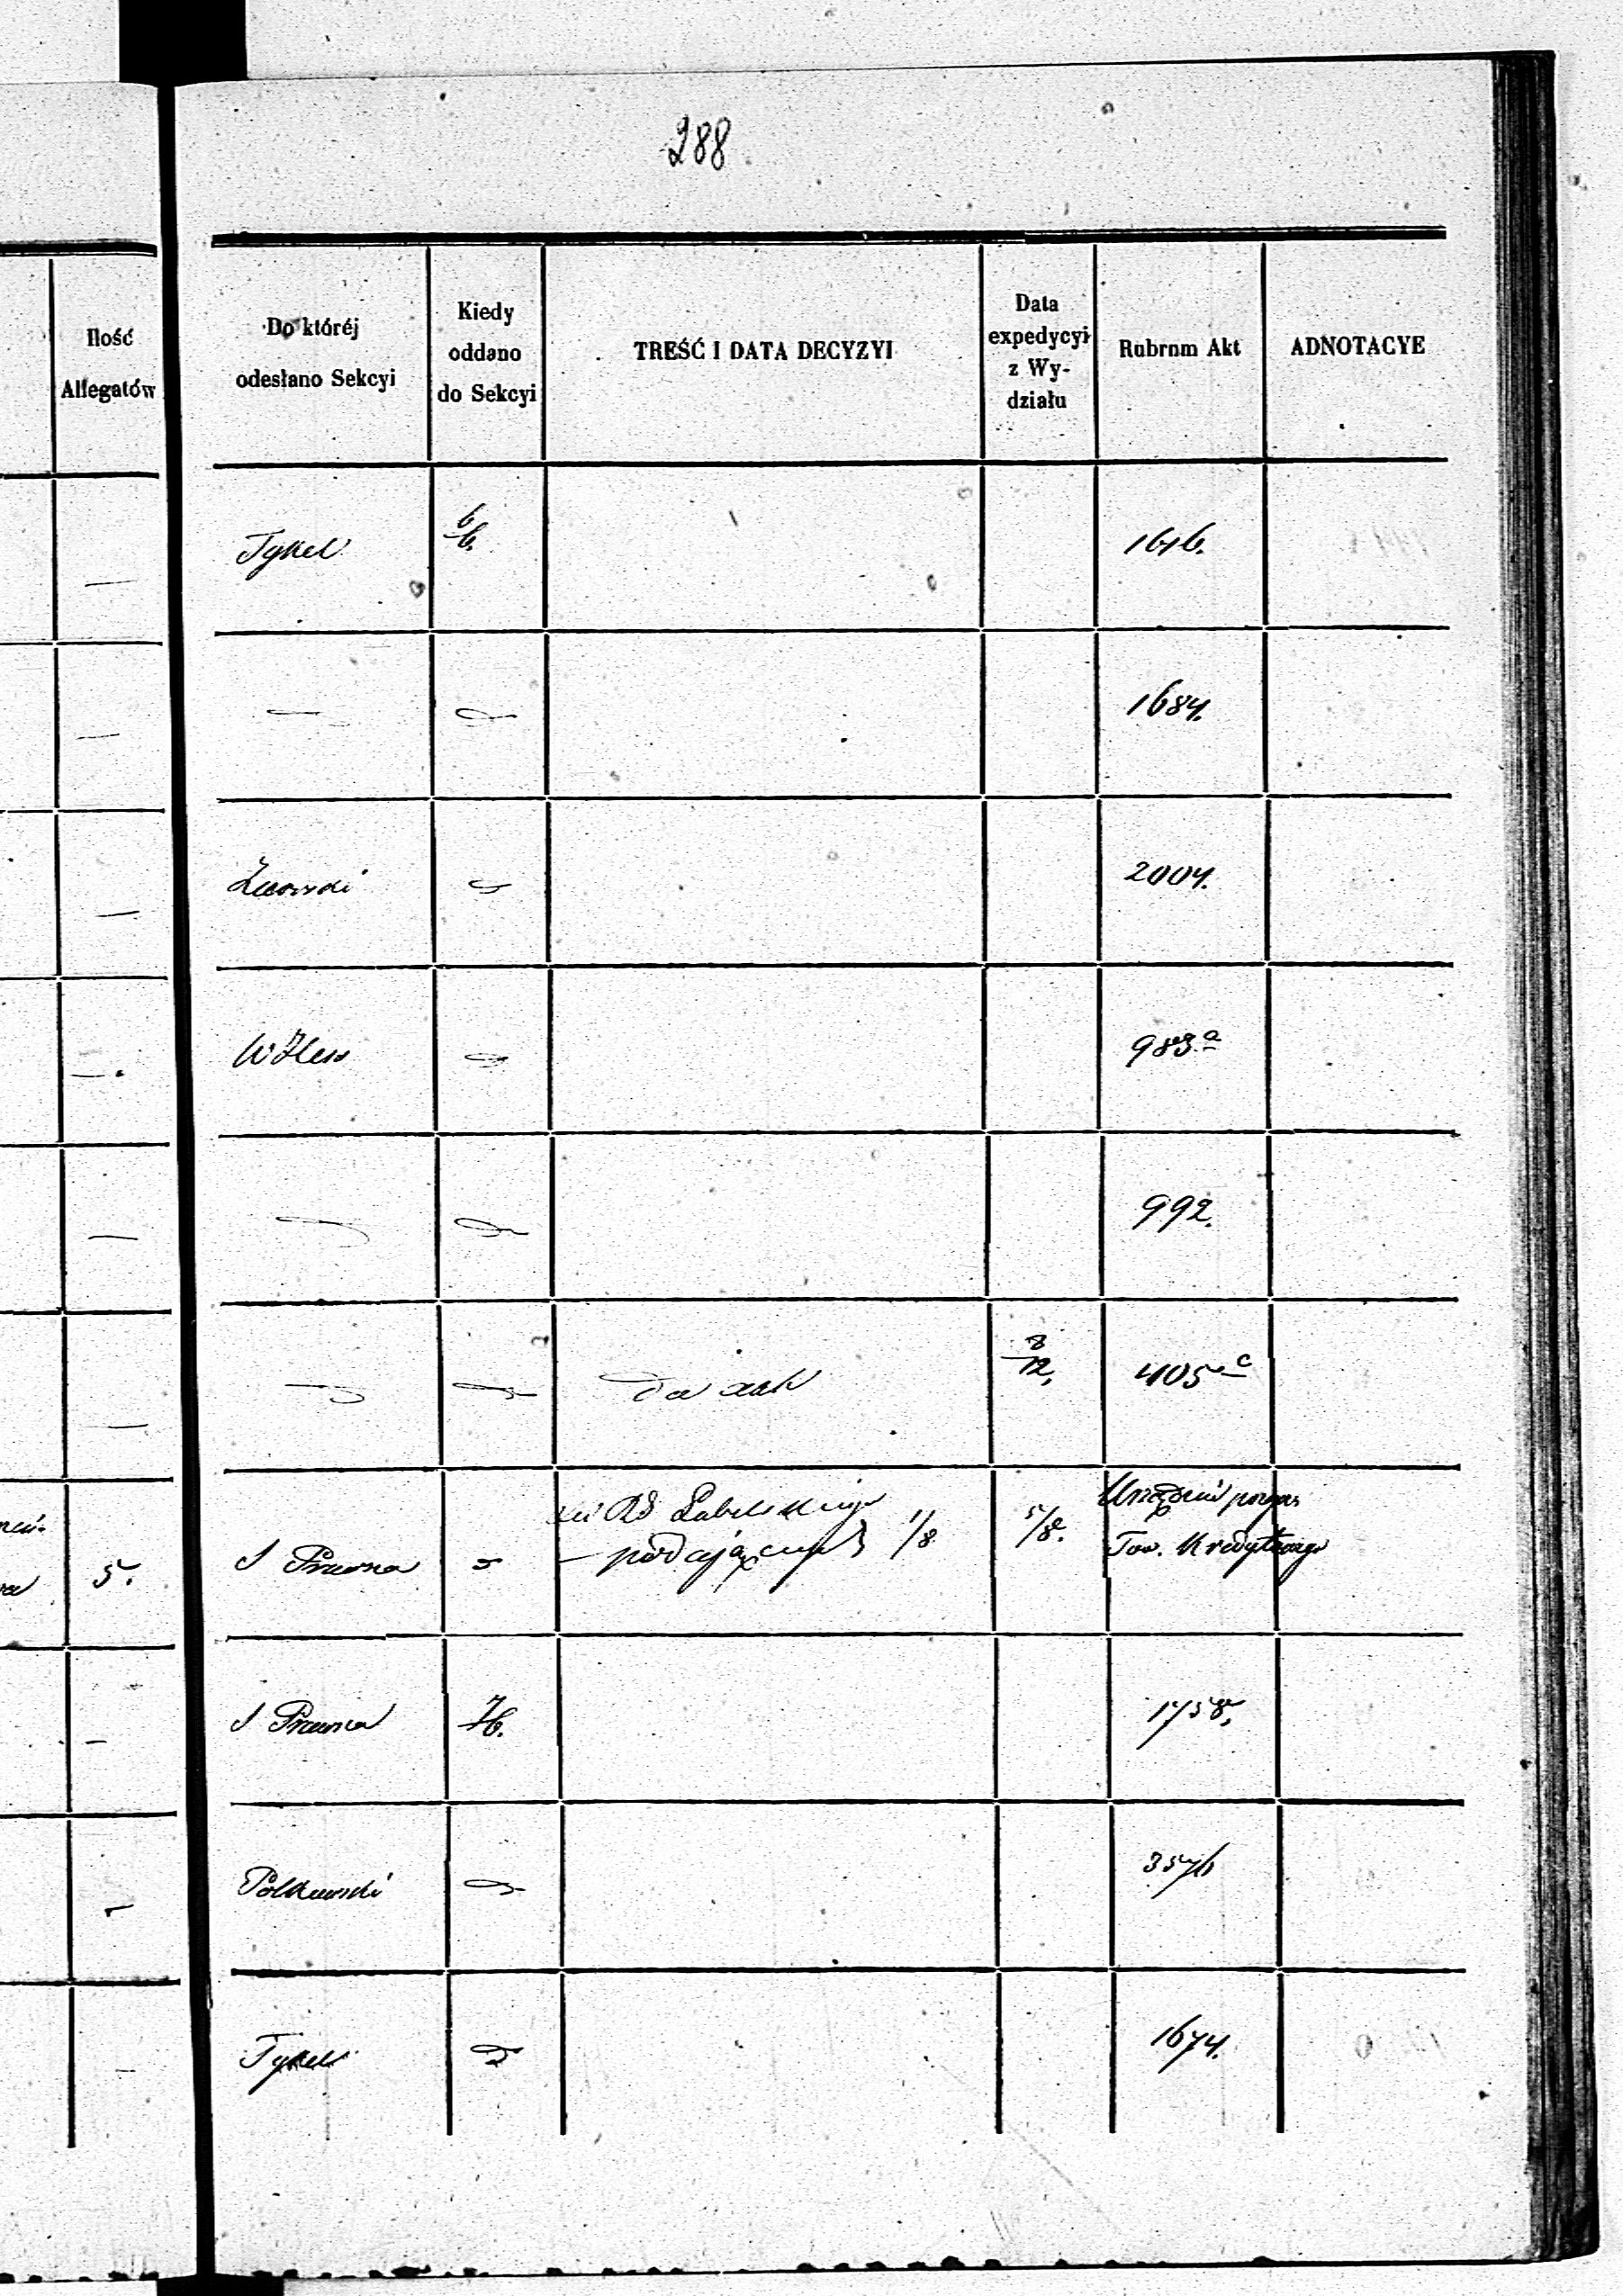 288
Ilość
Allegatów
Do któréj
odesłano Sekcyi
Kiedy
oddano
do Sekcyi
TREŚĆ I DATA DECYZYI
Data
expedycyi
z Wy-
działu
Rubrum Akt
ADNOTACYE
Tykel 6/6. 1616.
1684.
2004.
983 a
992.
do akt 8/12, 405 c
Lubelskiego
5. S Prawna 1/8 5/8.
Tow. Kredytowego
S Prawna 7/6. 1758,
Polkowski 3576
Tykel 1674.